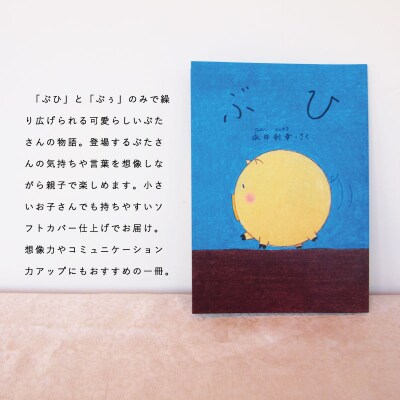 「ぶひ」と「ぶぅ」のみで繰
り広げられる可愛らしいぶた
さんの物語。登場するぶたさ
んの気持ちや言葉を想像しな
がら親子で楽しめます。小さ
いお子さんでも持ちやすいソ
フトカバー仕上げでお届け。
想像力やコミュニケーション
力アップにもおすすめの一冊。
ぶひ